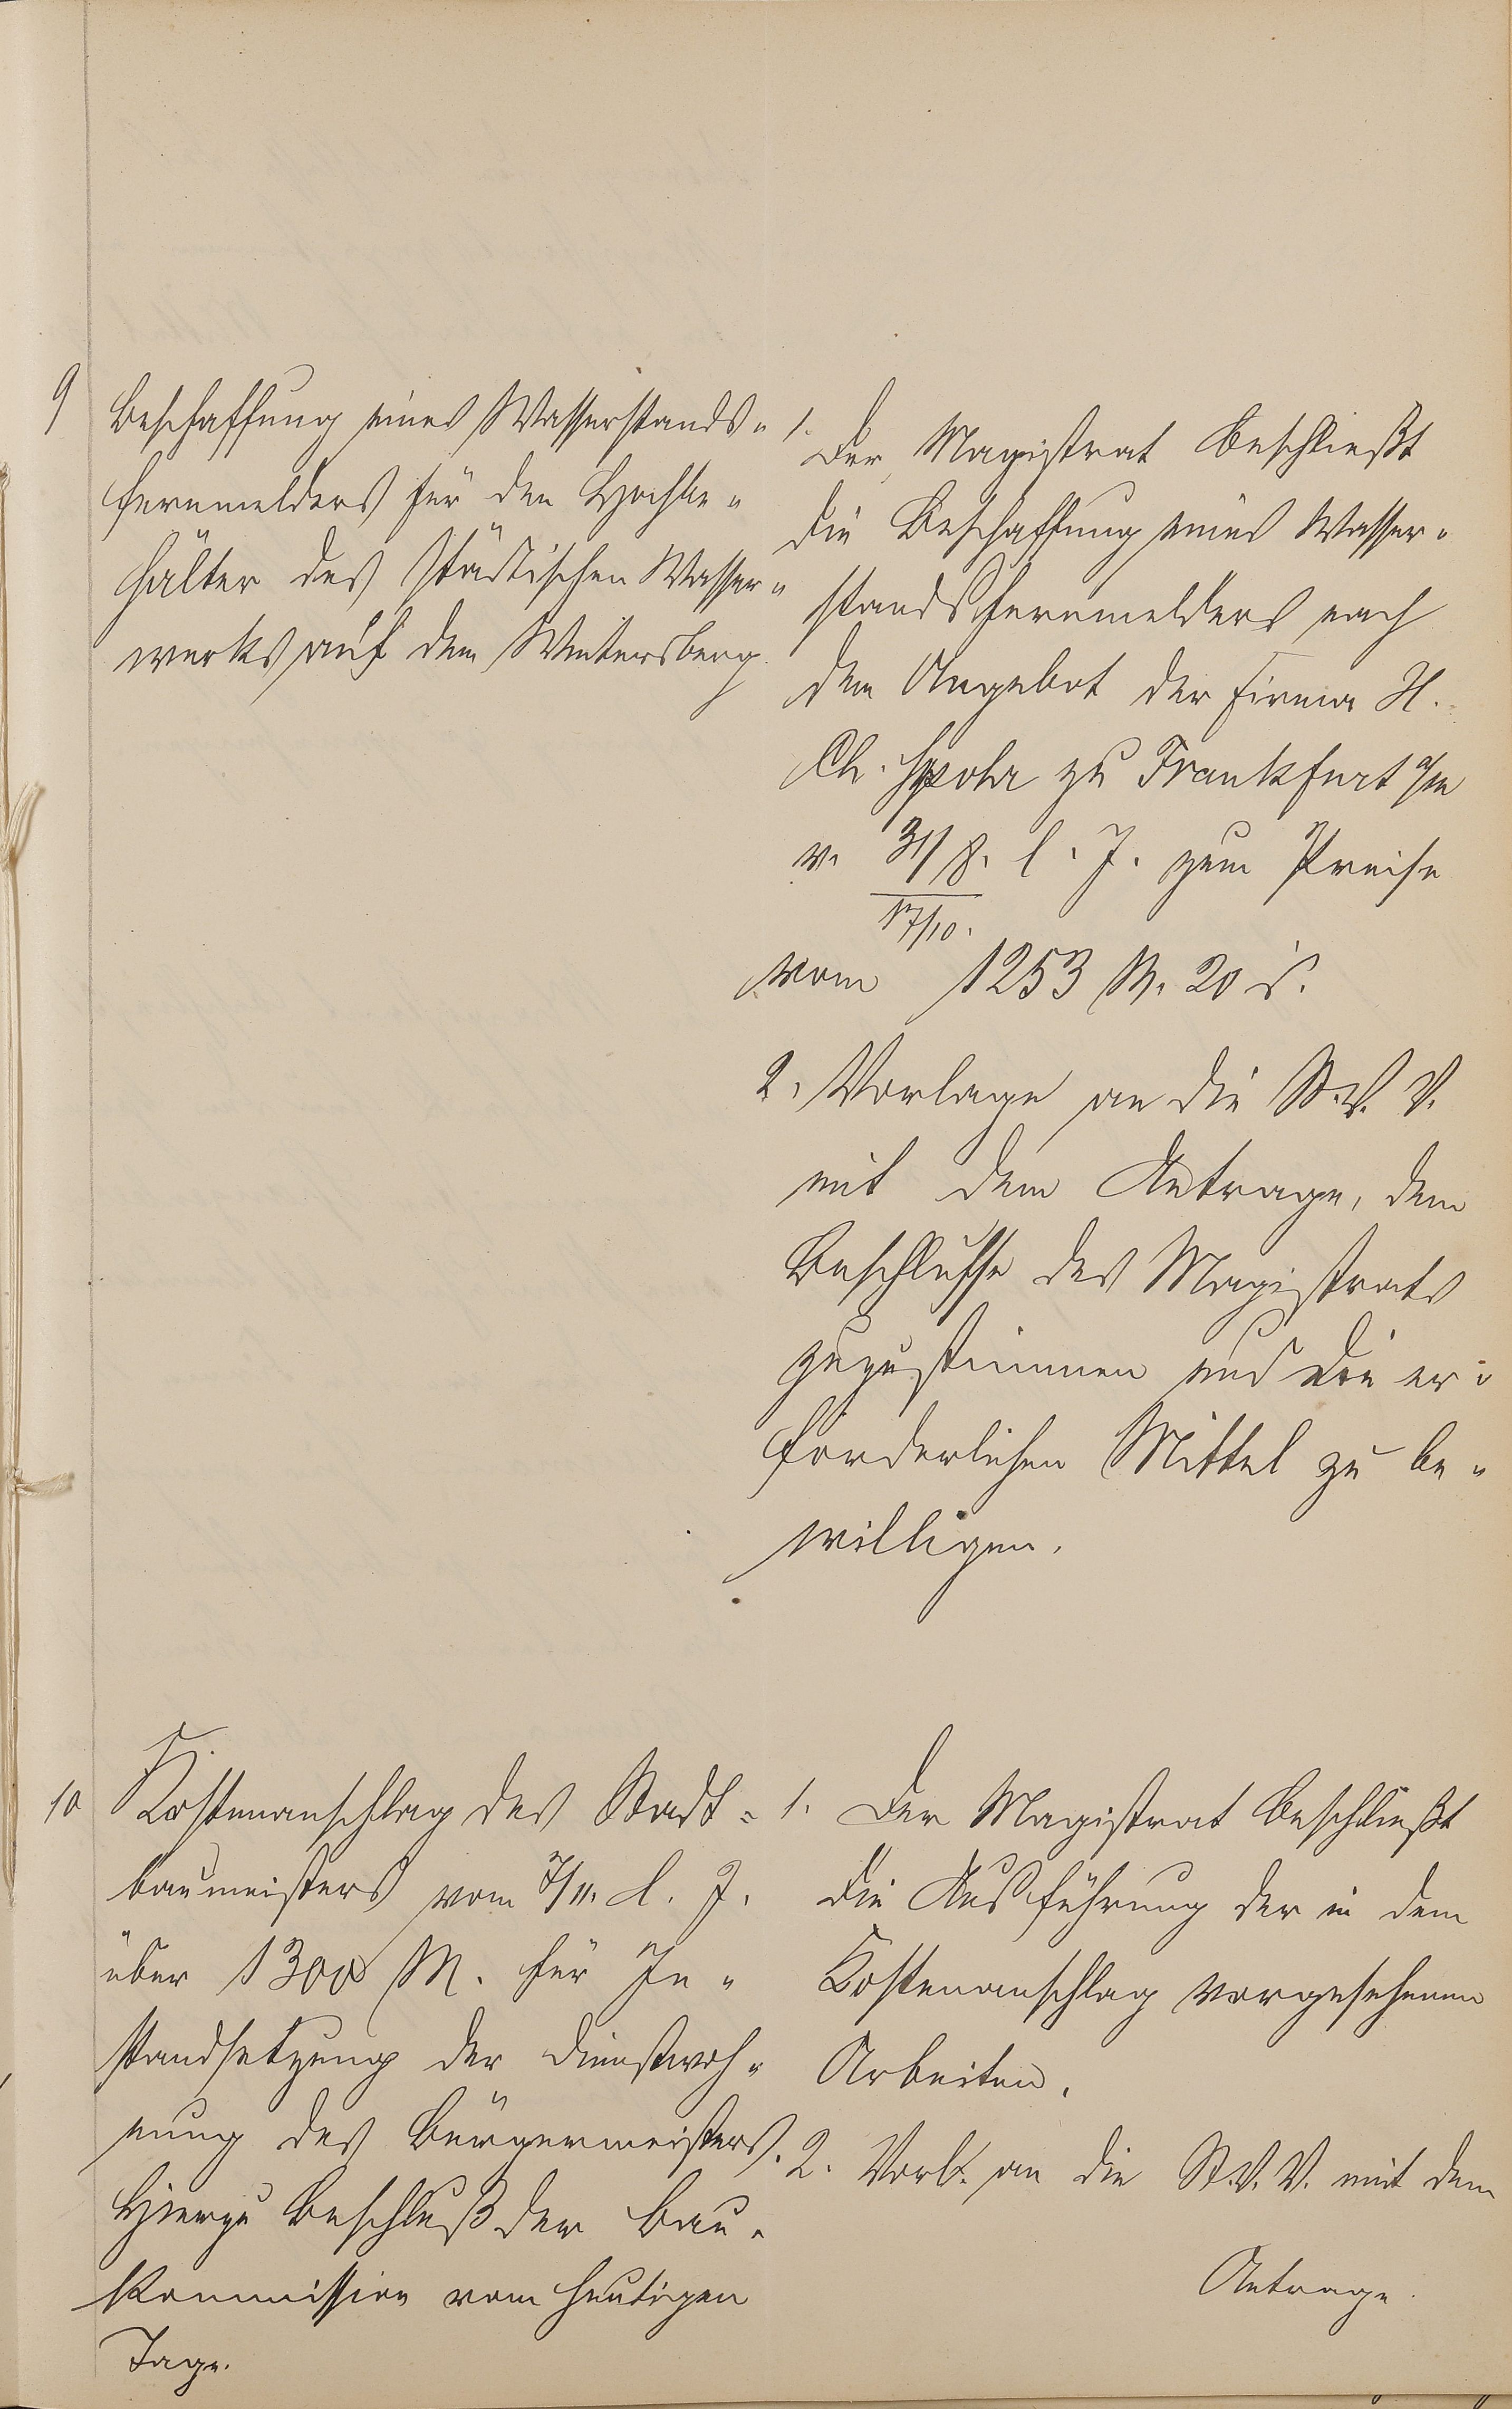 9
Beschaffung eines Wasserstands-
fernmelders für den Hochbe-
hälter des städtischen Wasser-
werks auf dem Wintersberg
1.
Der Magistrat beschließt
die Beschaffung eines Wasser-
standsfernmelders nach
dem Angebot der Firma H.
Ch. Spohr zu Frankfurt a/m
v. 31/8. l. J. zum Preise
17/10.
vom 1253 M. 20 d.
2. Vorlage an die St. V. V.
mit dem Antrage, dem
Beschlusse des Magistrats
zuzustimmen und die er-
forderlichen Mittel zu be-
willigen.
10
Kostenanschlag des Stadt-
baumeisters vom 7/11. l. J.
über 1300 M. für In-
standsetzung der Dienstwoh-
nung des Bürgermeisters.
Hierzu Beschluß der Bau-
kommission vom heutigen
Tage.
1. Der Magistrat beschließt
die Ausführung der in dem
Kostenanschlag vorgesehenen
Arbeiten.
2. Vorl. an die St. V. V. mit dem
Antrage.